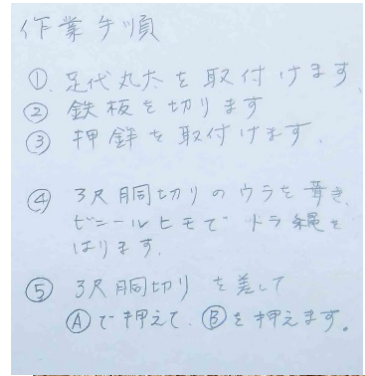 作業手順
①. 足代丸太を取付けます.
② 鉄板を切ります
③ 押鉾を取付けます.
④ 3尺胴切りのウラを葺き、
ビニールヒモで ドラ縄を
はります.
⑤ 3尺胴切り を差して
Ⓐで押えて. Ⓑを押えます。